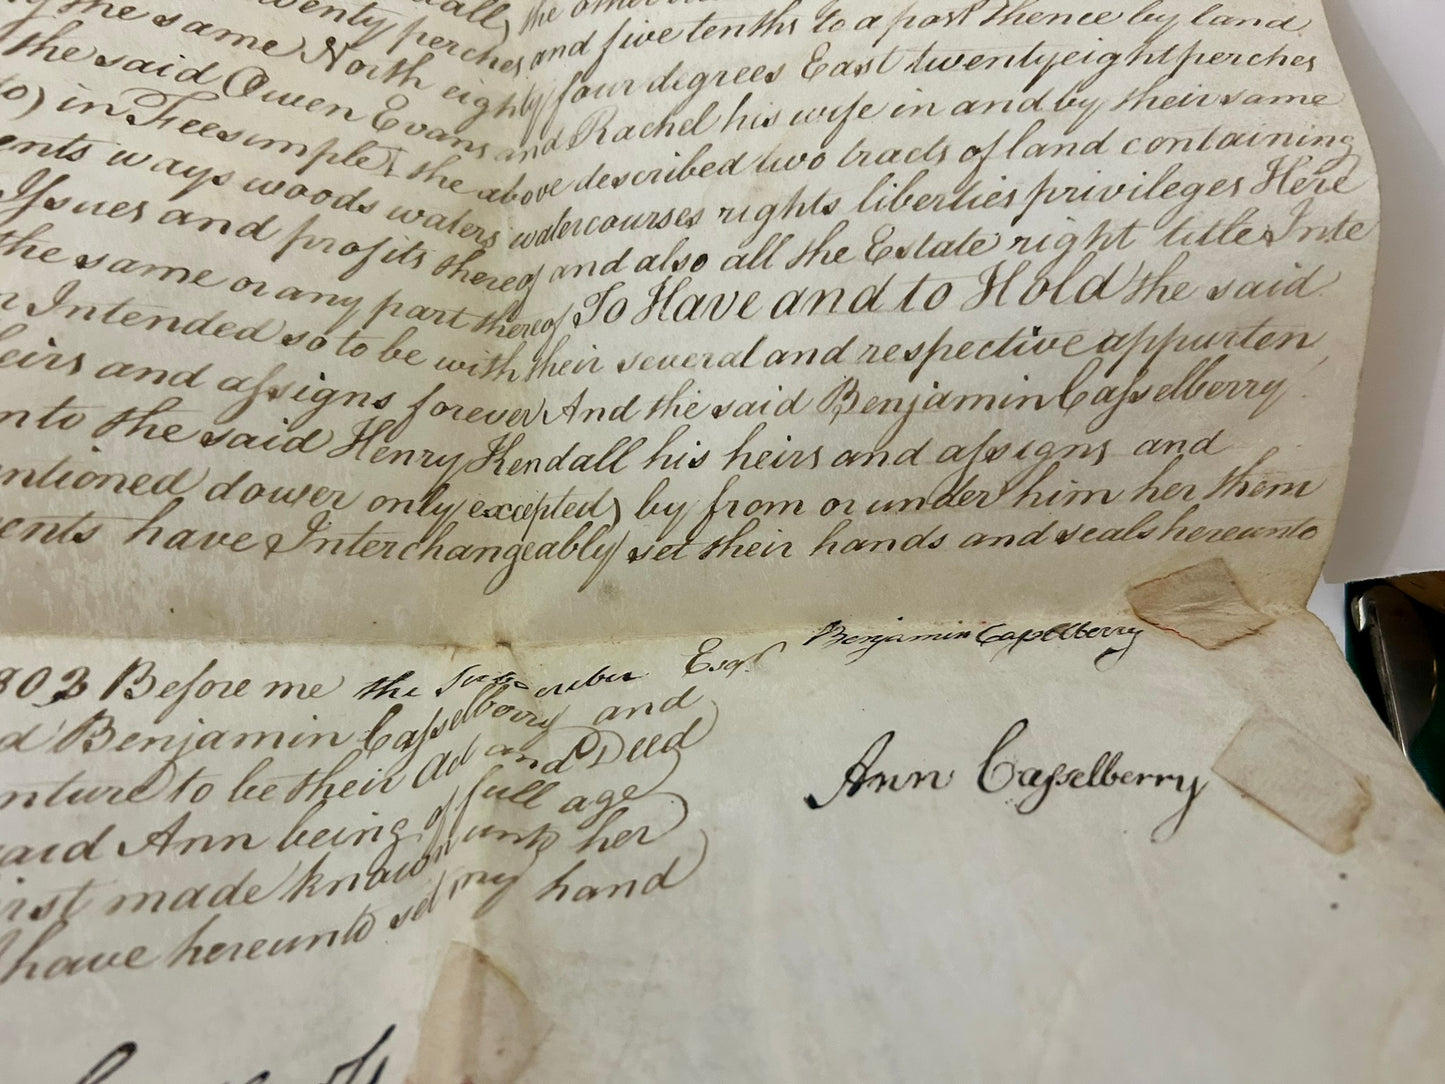 the same North eighty four degrees East twentyeight perches
the said Owen Evans and Rachel his wife in and by their same
in Feesimple & the above described two tracts of land containing
ents ways woods waters watercourses rights liberties privileges Here
Issues and profits thereof and also all the Estate right title Inte
the same or any part thereof To Have and to Hold the said
Intended so to be with their several and respective appurten
eirs and assigns forever And the said Benjamin Casselberry
nto the said Henry Kendall his heirs and assigns and
ntioned dower only excepted) by from or under him her them
ents have Interchangeably set their hands and seals hereunto
Benjamin Casselberry
803 Before me the Esqr
d Benjamin Casselberry and
nture to be their Act and Deed
aid Ann being of full age
irst made known unto her
I have hereunto set my hand
Ann Casselberry